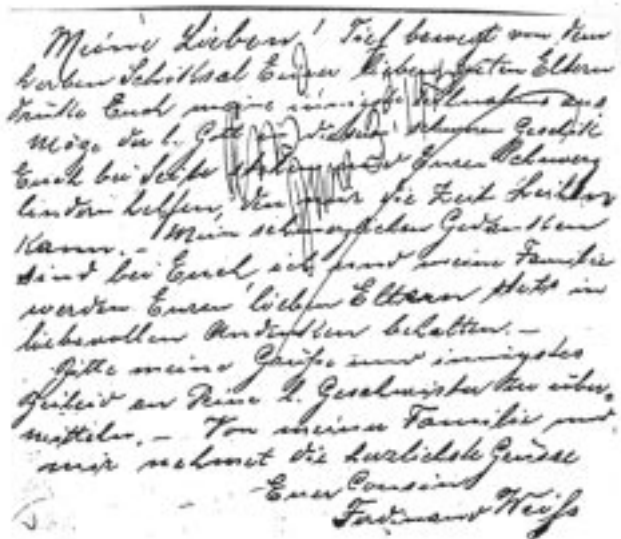 Meine Lieben! Tief bewegt von dem
herben Schiksal Eurer lieben guten Eltern
drüke Euch meine innigste Teilnahme aus
Möge der l. Gott in diesem schweren Geschik
Euch bei Seite stehen und Euren Schmerz
lindern helfen, den nur die Zeit heilen
kann. – Mein schmerzlichen Gedanken
sind bei Euch ich und meine Familie
werden Euren lieben Eltern stets in
liebevollen Andenken behalten. –
Bitte meine Grüße und innigstes
Beileid an Deine l. Geschwister zu über-
mitteln. – Von meiner Familie und
mir nehmet die herzlichste Grüsse
Euer Cousin
Ferdinand Weiss